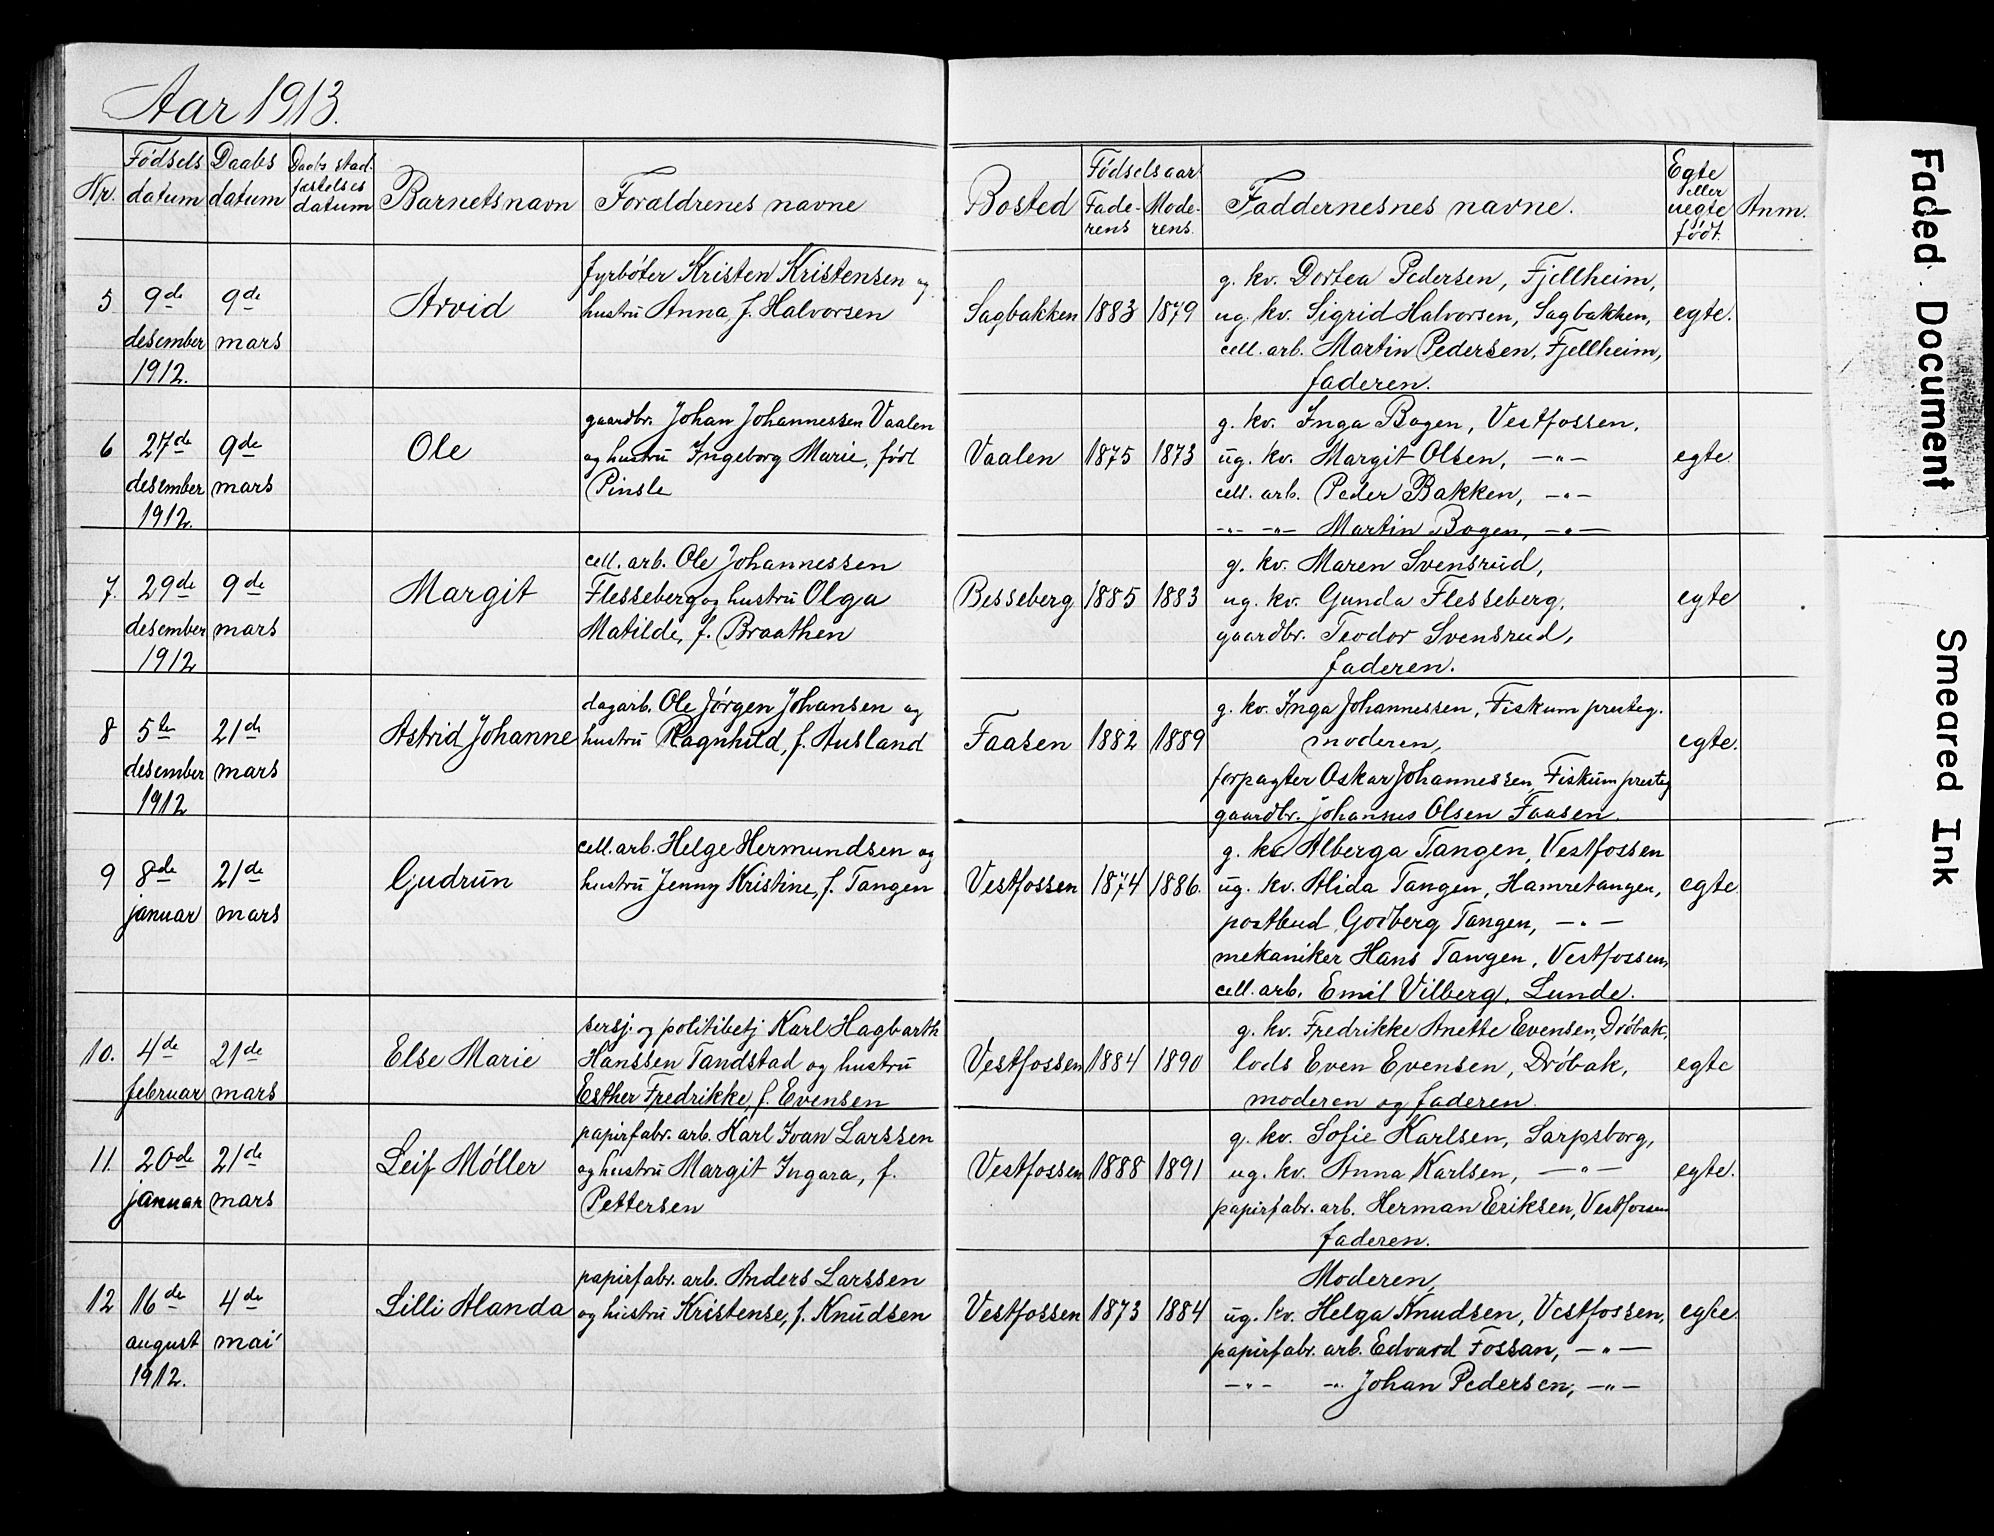 Aar 1913.
Nr. Fødsels datum Daabs datum Daabs stad- fæstelses datum Barnetsnavn Forældrenes navne Bosted Fødselsaar Fade- rens Mode- rens. Faddernesnes navne. Egte eller uegte født. Anm.
5 9de desember 1912. 9de mars Arvid
fyrbøter Kristen Kristensen og
hustru Anna, f. Halvorsen
Sagbakken 1883 1879
g. kv. Dortea Pedersen, Fjellheim,
ug. kv. Sigrid Halvorsen, Sagbakken,
cell. arb. Martin Pedersen, Fjellheim,
faderen.
egte.
6 27de desember 1912. 9de mars Ole
gaardbr. Johan Johannessen Vaalen
og hustru Ingeborg Marie, født
Pinsle
Vaalen 1875 1873
g. kv. Inga Bogen, Vestfossen,
ug. kv. Margit Olsen, —"—
cell. arb. Peder Bakken, —"—
—"— —"— Martin Bogen, —"—
egte
7. 29de desember 1912 9de mars Margit
cell. arb. Ole Johannessen
Flesseberg og hustru Olga
Matilde, f. Braathen
Besseberg 1885 1883
g. kv. Maren Svensrud,
ug. kv. Gunda Flesseberg,
gaardbr. Teodor Svensrud,
faderen.
egte
8 5te desember 1912 21de mars Astrid Johanne
dagarb. Ole Jørgen Johansen og
hustru Ragnhild, f. Ausland
Faasen 1882 1889
g. kv. Inga Johannessen, Fiskum presteg.
moderen,
forpagter Oskar Johannessen, Fiskum presteg
gaardbr. Johannes Olsen Faasen.
egte.
9 8de januar 21de mars Gjudrun
cell. arb. Helge Hermundsen og
hustru Jenny Kristine, f. Tangen
Vestfossen 1874 1886.
g. kv. Alberga Tangen, Vestfossen
ug. kv. Alida Tangen, Hamretangen,
postbud Godberg Tangen, —"—
mekaniker Hans Tangen, Vestfossen,
cell. arb. Emil Vilberg, Lunde.
egte.
10. 4de februar 21de mars Else Marie
sersj. og politibetj Karl Hagbarth
Hanssen Tandstad og hustru
Esther Fredrikke, f. Evensen
Vestfossen 1884 1890
g. kv. Fredrikke Anette Evensen, Drøbak,
lods Even Evensen, Drøbak,
moderen og faderen.
egte
11. 20de januar 21de mars Leif Møller
papirfabr. arb. Karl Ivan Larssen
og hustru Margit Ingara, f.
Pettersen
Vestfossen 1888 1891
g. kv. Sofie Karlsen, Sarpsborg,
ug. kv. Anna Karlsen, —"—
papirfabr. arb. Herman Eriksen, Vestfossen
faderen.
egte.
12 16de august 1912. 4de mai Lilli Alanda
papirfabr. arb. Anders Larssen
og hustru Kristense, f. Knudsen
Vestfossen 1873 1884
Moderen,
ug. kv. Helga Knudsen, Vestfossen,
papirfabr. arb. Edvard Fossan, —"—
—"— —"— Johan Pedersen, —"—
egte.
Faded Document
Smeared Ink